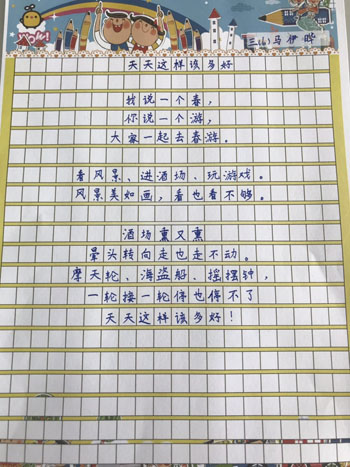 Wow!
三(4)马伊晔
天天这样该多好
我说一个春，
你说一个游，
大家一起去春游。
看风景、进酒场、玩游戏。
风景美如画，看也看不够。
酒场熏又熏
晕头转向走也走不动。
摩天轮、海盗船、摇摆钟，
一轮接一轮停也停不了
天天这样该多好！